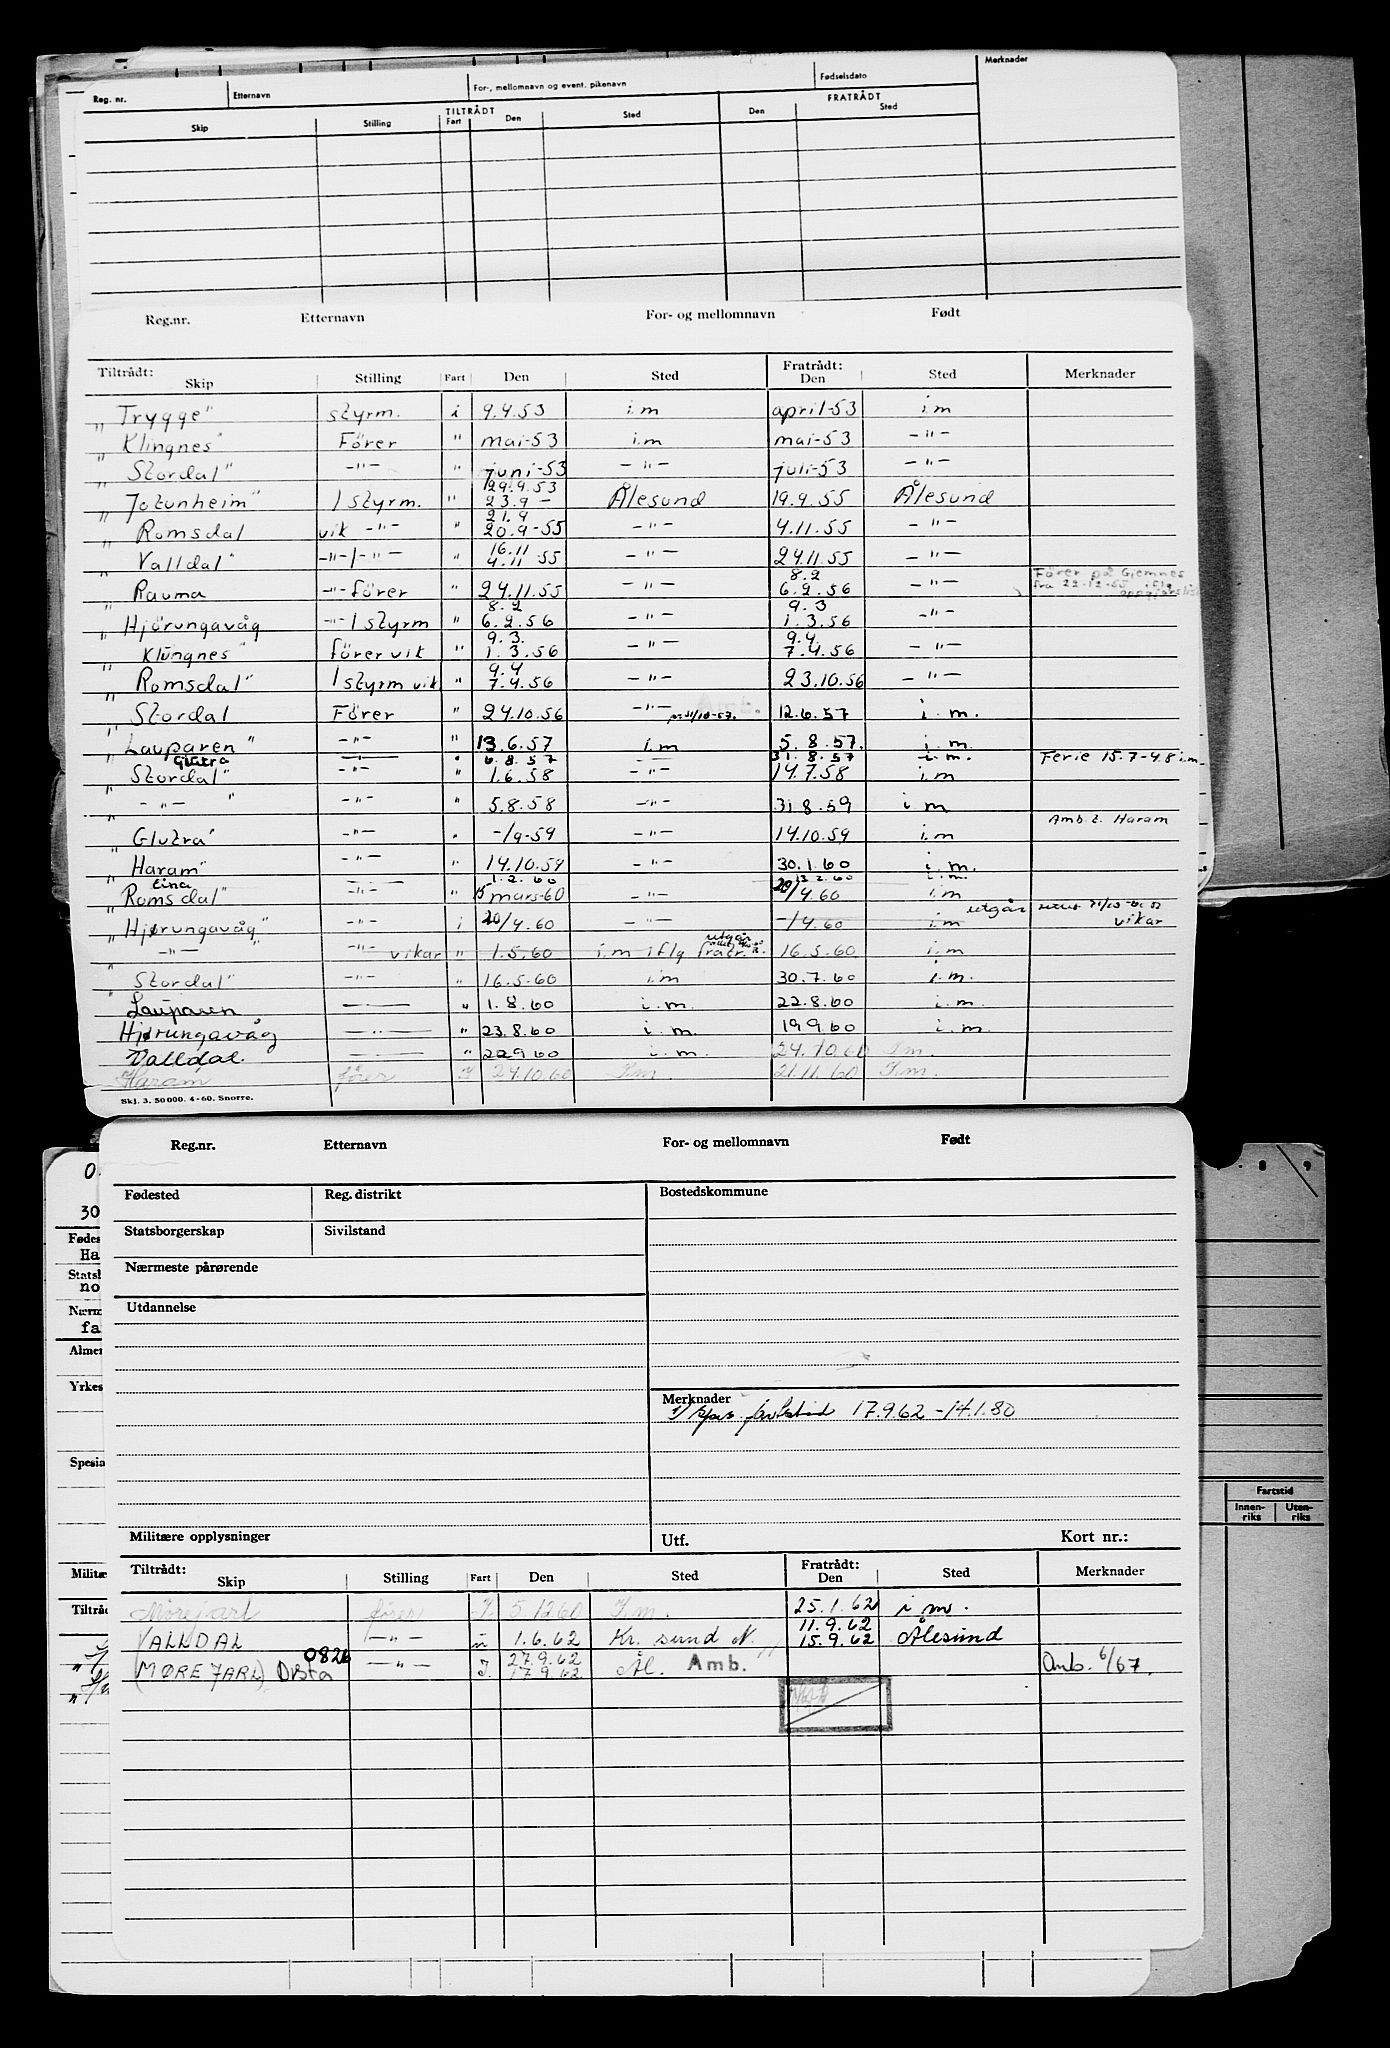 Reg. nr. Etternavn For-, mellomnavn og event. pikenavn Fødselsdato Merknader
TILTRÅDT FRATRÅDT
Skip Stilling Fart Den Sted Den Sted
Reg.nr. Etternavn For- og mellomnavn Født
Tiltrådt: Fratrådt:
Skip Stilling Fart Den Sted Den Sted Merknader
„Trygge" styrm. i 9.4.53 i.m april-53 i m
„Klingnes" Förer " mai-53 i.m mai-53 -"-
„Stordal" -"- " juni-53 -"- juli-53 -"-
29.9.53
„Jotunheim" 1 styrm. " 23.9 - Ålesund 19.9.55 Ålesund
21.9
„Romsdal vik -"- " 20.9-55 -"- 4.11.55 -"-
16.11
„Valldal" -"-/-"- " 4.11 55 -"- 24.11.55 -"-
8.2 Förer på Gjemnes
„Rauma -"- förer " 24.11.55 -"- 6.2.56 -"- fra 22-12-55 iflg
8.2 9.3
„Hjörungavåg -"- 1 styrm " 6.2.56 -"- 1.3.56 -"-
9.3. 9.4.
„Klungnes" förer vik " 1.3.56 -"- 7.4.56 -"-
9.4
„Romsdal" 1 styrm vik " 7.4.56 -"- 23.10.56 -"-
„Stordal Förer " 24.10.56 -"- 12.6.57 i.m.
„Lauparen" -"- " 13.6.57 i.m 5.8.57. i.m.
Glutra -"- " 6.8.57 -"- 31.8.57 i.m. Ferie 15.7-4.8 i.m.
„Stordal" -"- " 1.6.58 14.7.58 i.m
„ -"- " -"- " 5.8.58 -"- 31 8.59 i m
Amb.t. Haram
„Glutra" -"- " -/9-59 -"- 14.10.59 i.m
„Haram" -"- " 14.10.59 -"- 30.1.60 i.m.
Eina 1.2.60 13 2.60 i.m.
„Romsdal" -"- " 15 mars-60 -"- 20/4.60 i.m
utgår
„Hjørungavåg" -"- i 20/4.60 -"- -/4.60 i.m vikar
utgår
„ -"- " -"- vikar " 1.5.60 i.m iflg fratr. 16.5.60 i.m
„Stordal" -"- " 16.5.60 i.m 30.7.60 i.m.
Lauparen " 1.8.60 i.m. 22.8.60 i.m.
Hjørungavåg -"- " 23.8.60 i.m. 19 9.60 i.m.
Valldal -"- " 22 9 60 i.m. 24.10.60 I m.
Haram fører I 24.10.60 I m 21.11.60 I.m.
Skj. 3. 50 000. 4-60. Snorre.
Reg.nr. Etternavn For- og mellomnavn Født
Fødested Reg. distrikt Bostedskommune
Statsborgerskap Sivilstand
Nærmeste pårørende
Utdannelse
Merknader
17.9.62 - 14.1.80
Militære opplysninger Utf. Kort nr.:
Tiltrådt: Fratrådt:
Skip Stilling Fart Den Sted Den Sted Merknader
Mørejarl fører I 5.12 60 I.m. 25.1.62 i m.
11.9.62
VALLDAL -"- 1.6.62 Kr. sund N. 15.9.62 Ålesund
0826 27.9.62
(MØRE JARL) Ørsta -"- I. 17.9.62 Ål. Amb. Amb. 6/67.
0
30
Fødes
Ha
Statsb
no
Nærm
fa
Almen
Yrkes
Spesia
Militæ
Tiltråd
8 9
Fartstid
Innen-riks Uten-riks